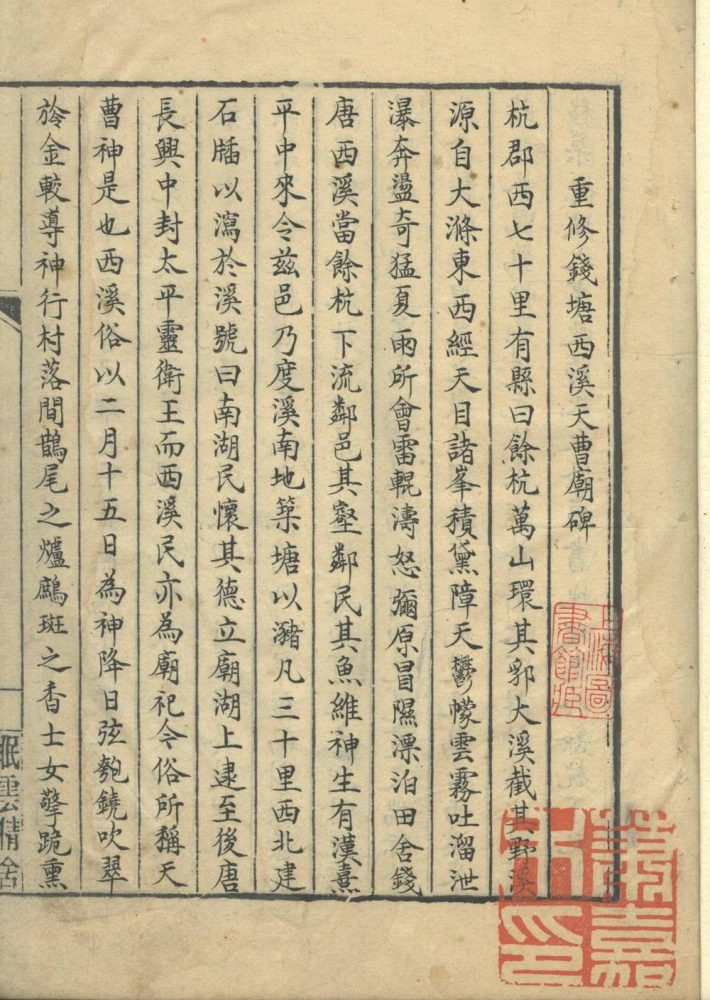 重修錢塘西溪天曹廟碑
杭郡西七十里有縣曰餘杭萬山環其郛大溪截其野溪
源自大滌東西經天目諸峯積黛障天鬱幪雲霧吐溜泄
瀑奔盪奇猛夏雨所會雷輥濤怒彌原冒隰漂泊田舍錢
唐西溪當餘杭下流鄰邑其壑鄰民其魚維神生有漢熹
平中來令茲邑乃度溪南地築塘以瀦凡三十里西北建
石牐以瀉於溪號曰南湖民懷其德立廟湖上逮至後唐
長興中封太平靈衛王而西溪民亦為廟祀今俗所稱天
曹神是也西溪俗以二月十五日為神降日弦匏鐃吹翠
旍金較導神行村落間鵲尾之爐鷓斑之香士女擎跪熏
上海圖
書館臧
眠雲精舍